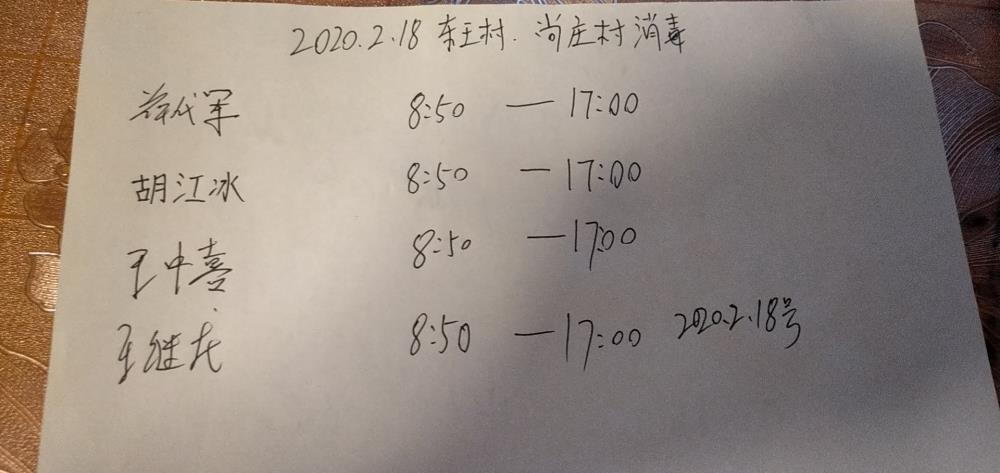 2020.2.18 东王村. 尚庄村消毒
代军 8:50 — 17:00
胡江冰 8:50 — 17:00
王中喜 8:50 — 17:00
王继龙 8:50 — 17:00 2020.2.18号